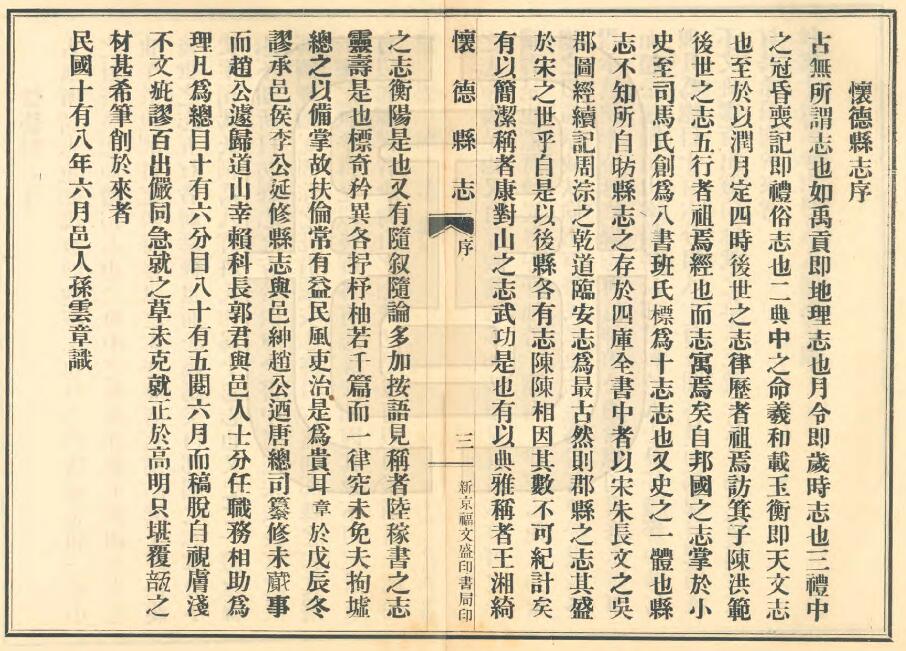 懷德縣志序
古無所謂志也如禹貢即地理志也月令即歲時志也三禮中
之冠昏喪記即禮俗志也二典中之命羲和載玉衡即天文志
也至於以潤月定四時後世之志律歷者祖焉訪箕子陳洪範
後世之志五行者祖焉經也而志寓焉矣自邦國之志掌於小
史至司馬氏創爲八書班氏標爲十志志也又史之一體也縣
志不知所自昉縣志之存於四庫全書中者以宋朱長文之吳
郡圖經續記周淙之乾道臨安志爲最古然則郡縣之志其盛
於宋之世乎自是以後縣各有志陳陳相因其數不可紀計矣
有以簡潔稱者康對山之志武功是也有以典雅稱者王湘綺
懷德縣志
序
三
新京福文盛印書局印
之志衡陽是也又有隨叙隨論多加按語見稱者陸稼書之志
靈壽是也標奇矜異各抒杼柚若干篇而一律究未免夫拘墟
總之以備掌故扶倫常有益民風吏治是爲貴耳章於戊辰冬
謬承邑侯李公延修縣志與邑紳趙公迺唐總司纂修未蕆事
而趙公遽歸道山幸賴科長郭君與邑人士分任職務相助爲
理凡爲總目十有六分目八十有五閱六月而稿脫自視膚淺
不文疵謬百出儼同急就之草未克就正於高明只堪覆瓿之
材甚希筆創於來者
民國十有八年六月邑人孫雲章識